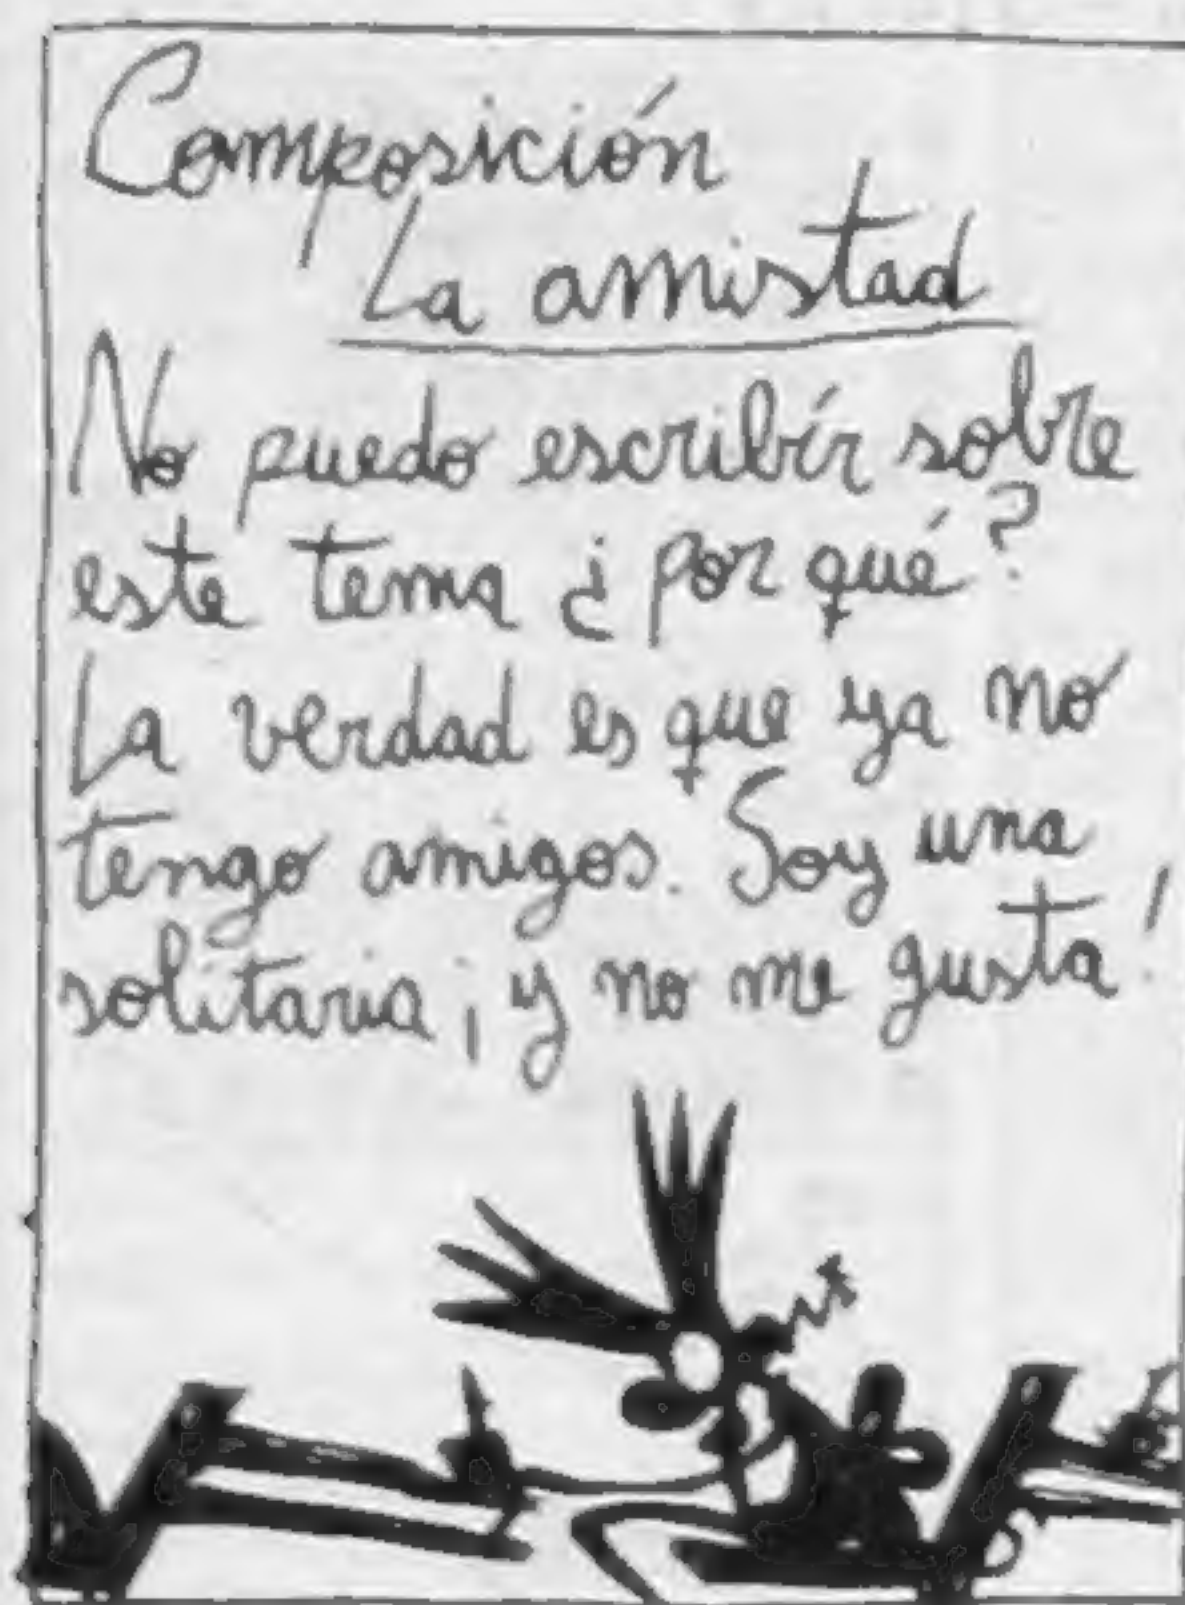 Composición
La amistad
No puedo escribír sobre
este tema ¿por qué?
La verdad es que ya no
tengo amigos. Soy una
solitaria ¡y no me gusta!